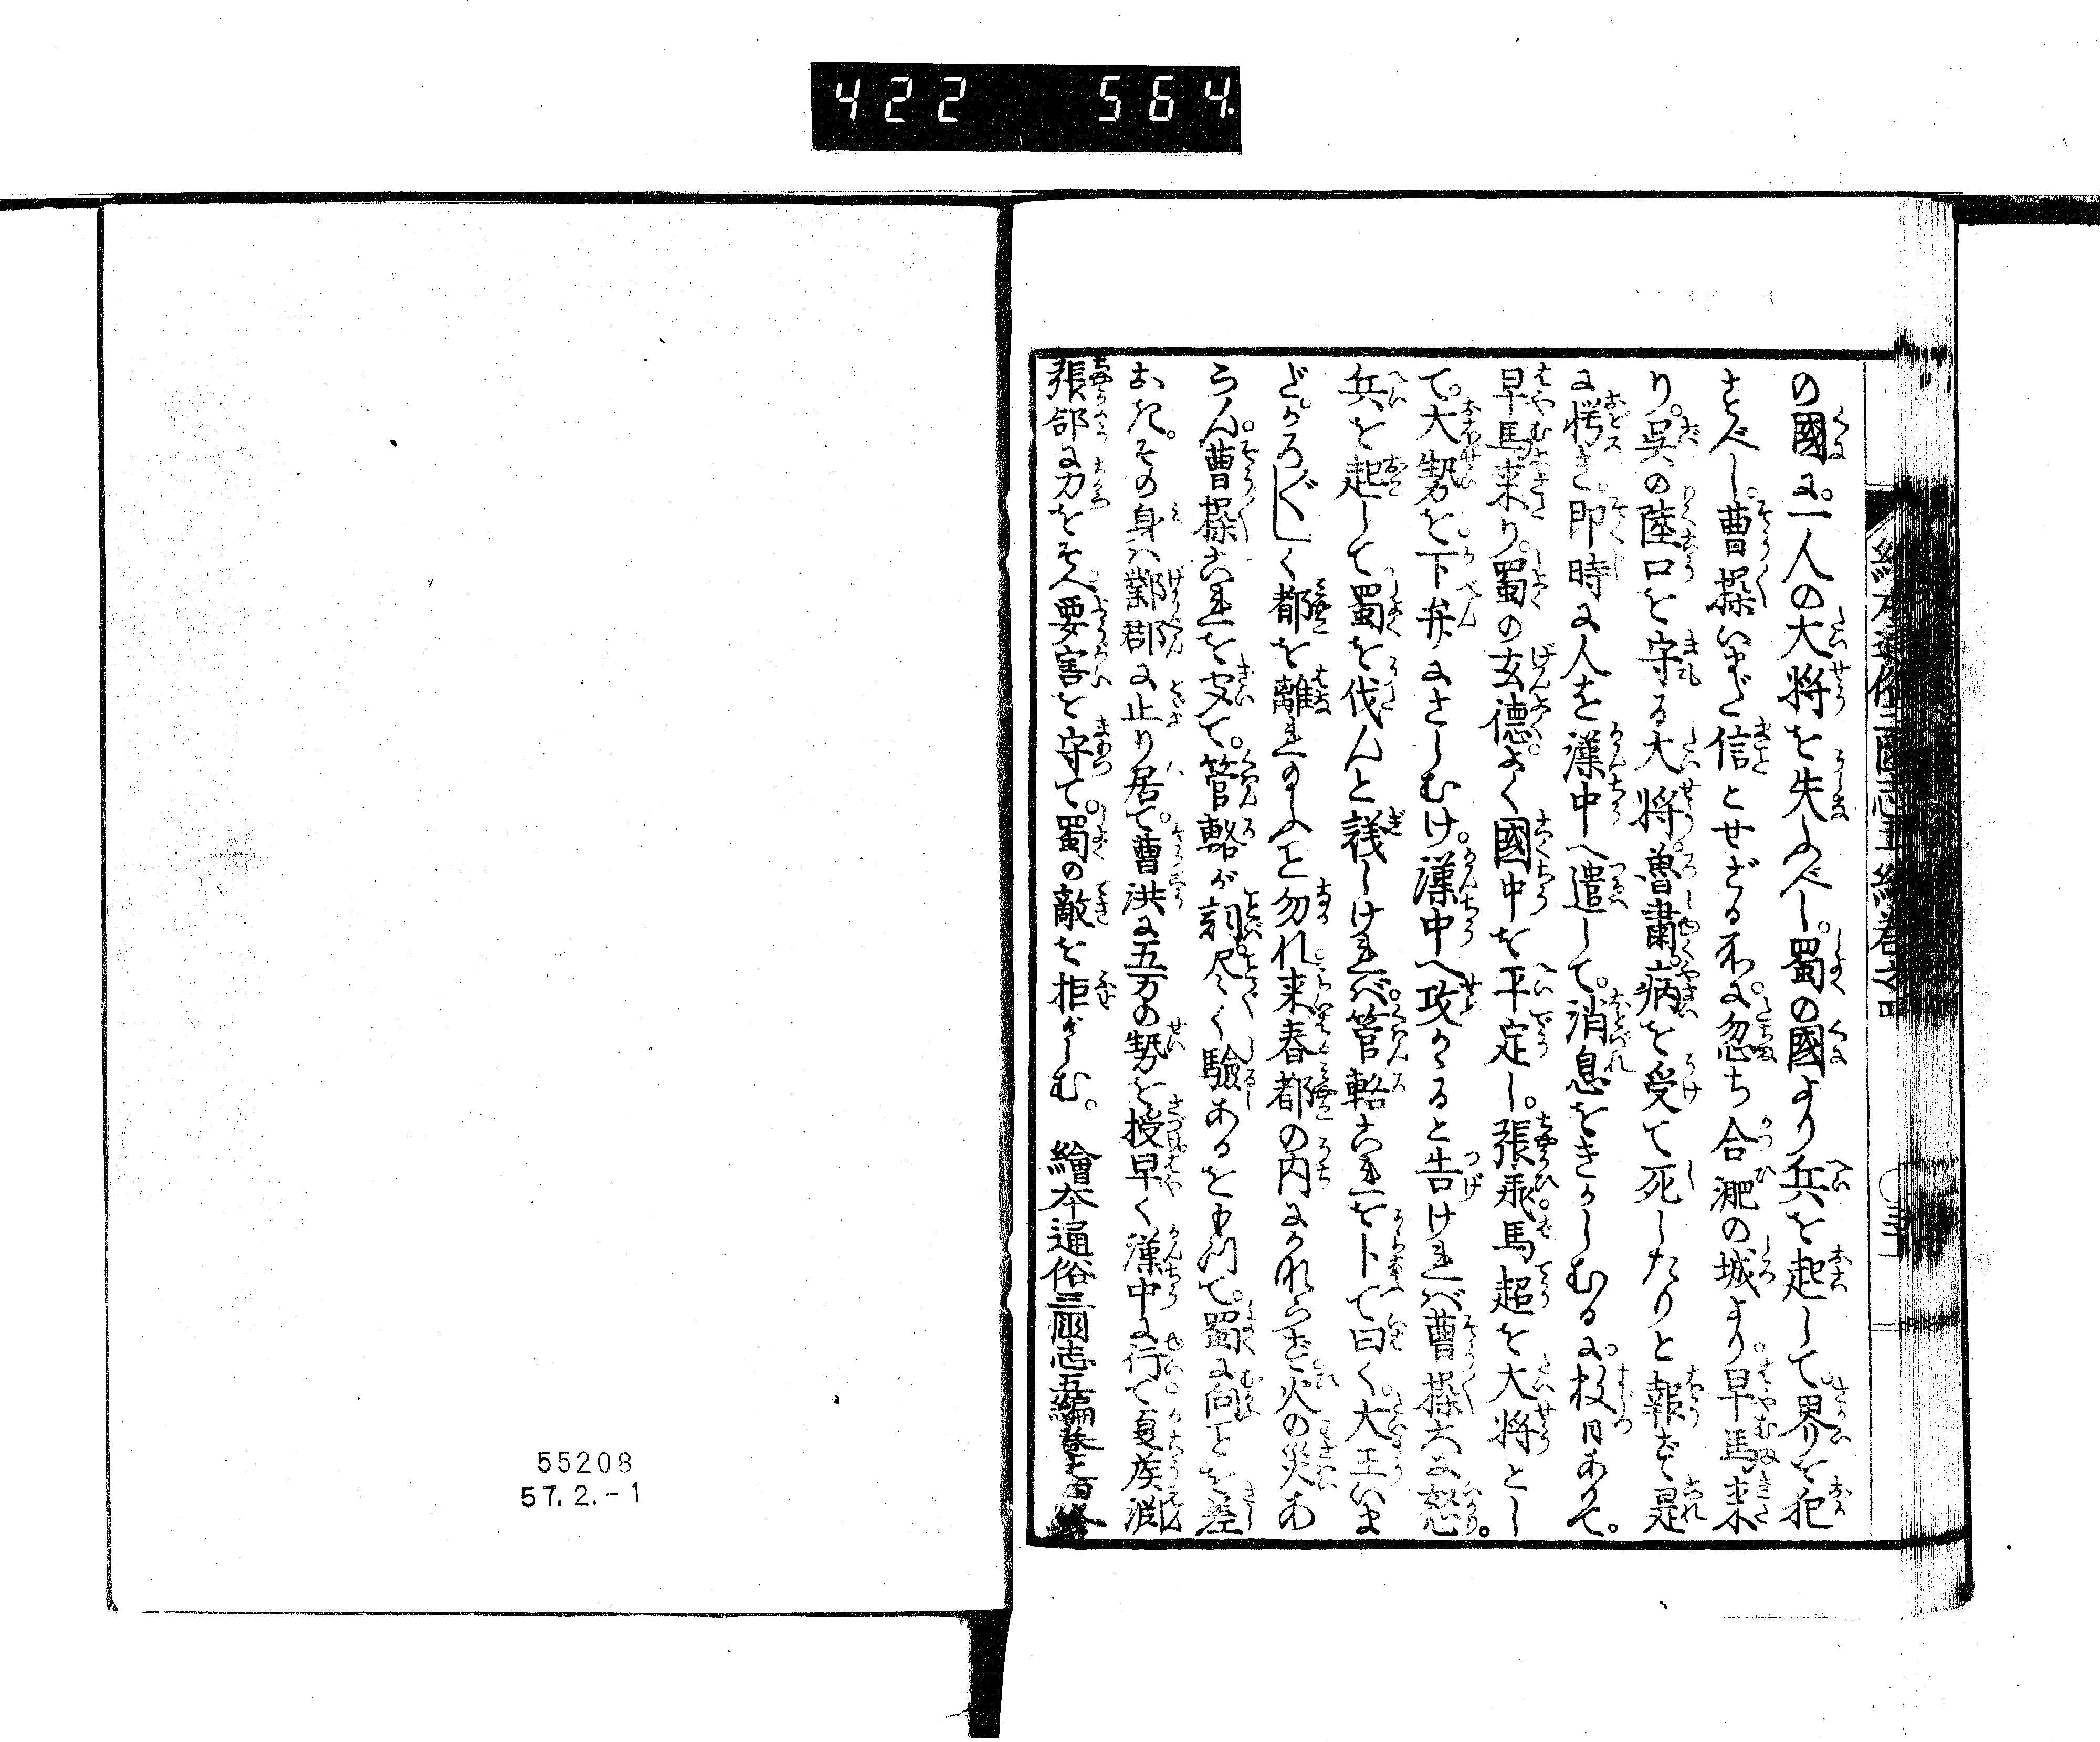 422 564
繪本通俗三國志五編巻之四
の國に。一人の大将を失ふべし。蜀の國より兵を起して界を犯
すべし。曹操いまだ信とせざる所に。忽ち合淝の城より早馬来
り。呉の陸口を守る大将魯粛。病を受て死したりと報ず是
に愕き即時に人を漢中へ遣して。消息をきかしむるに。数日ありて。
早馬来り。蜀の玄徳よく國中を平定し。張飛馬超を大将とし
て。大勢を下弁にさしむけ。漢中へ攻かると告けれバ曹操大に怒。
兵を起して蜀を伐んと議しけれバ。管輅これを卜て曰く。大王いま
だかろ〴〵しく都を離れ給ふこと勿れ来春都の内にかならず火の災あ
らん。曹操これを聞て。管輅が詞尽く驗あるを以て。蜀に向ことを差
おき。その身ハ鄴郡に止り居て。曹洪に五万の勢を授早く漢中に行て夏侯淵
張郃に力をそへ要害を守て。蜀の敵を拒がしむ。 繪本通俗三國志五編巻之四終
55208
57.2.-1